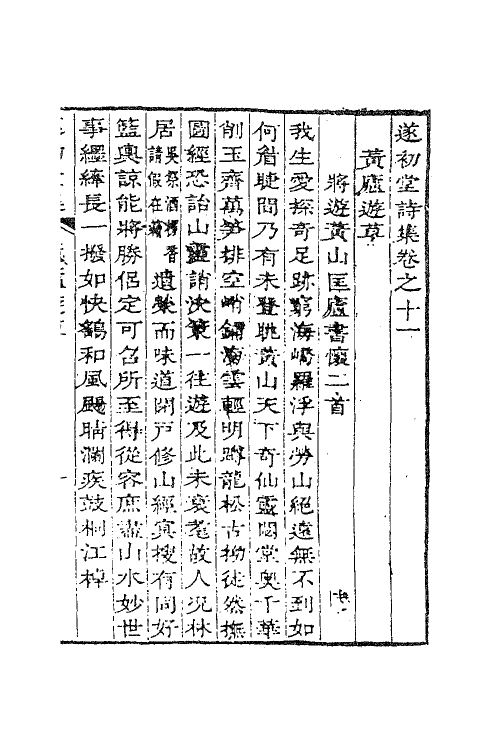 遂初堂詩集卷之十一
黃廬遊草
將遊黃山匡廬書懷二首
我生愛探奇足跡窮海嶠羅浮與勞山絕遠無不到如
何眉睫間乃有未登眺黃山天下奇仙靈閟堂奧千華
削玉齊萬笋排空峭鋪海雲輕明蹲龍松古拗徒然撫
圖經恐詒山靈誚決策一往遊及此未衰耄故人況休
居吳祭酒
請假在遺榮而味道閉戸修山經冥搜有同好
籃輿諒能將勝侶定可召所至得從容庶盡山水妙世
事纆繂長一撥如快鶴和風颺晴瀾疾鼓桐江棹